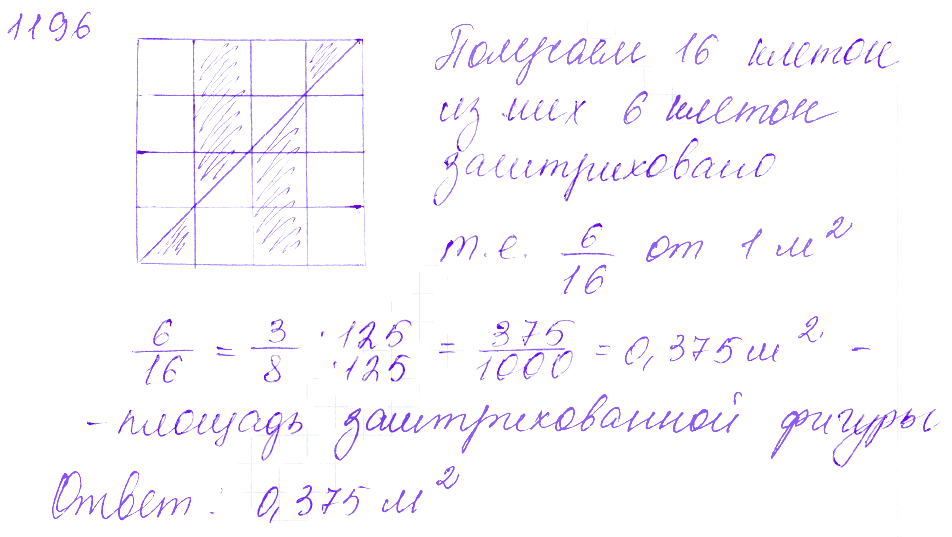 1196
Получаем 16 клеток
из них 6 клеток
заштриховано
т.е. 6/16 от 1 м²
6/16 = 3/8 ·125/·125 = 375/1000 = 0,375 м² –
– площадь заштрихованной фигуры
Ответ: 0,375 м²